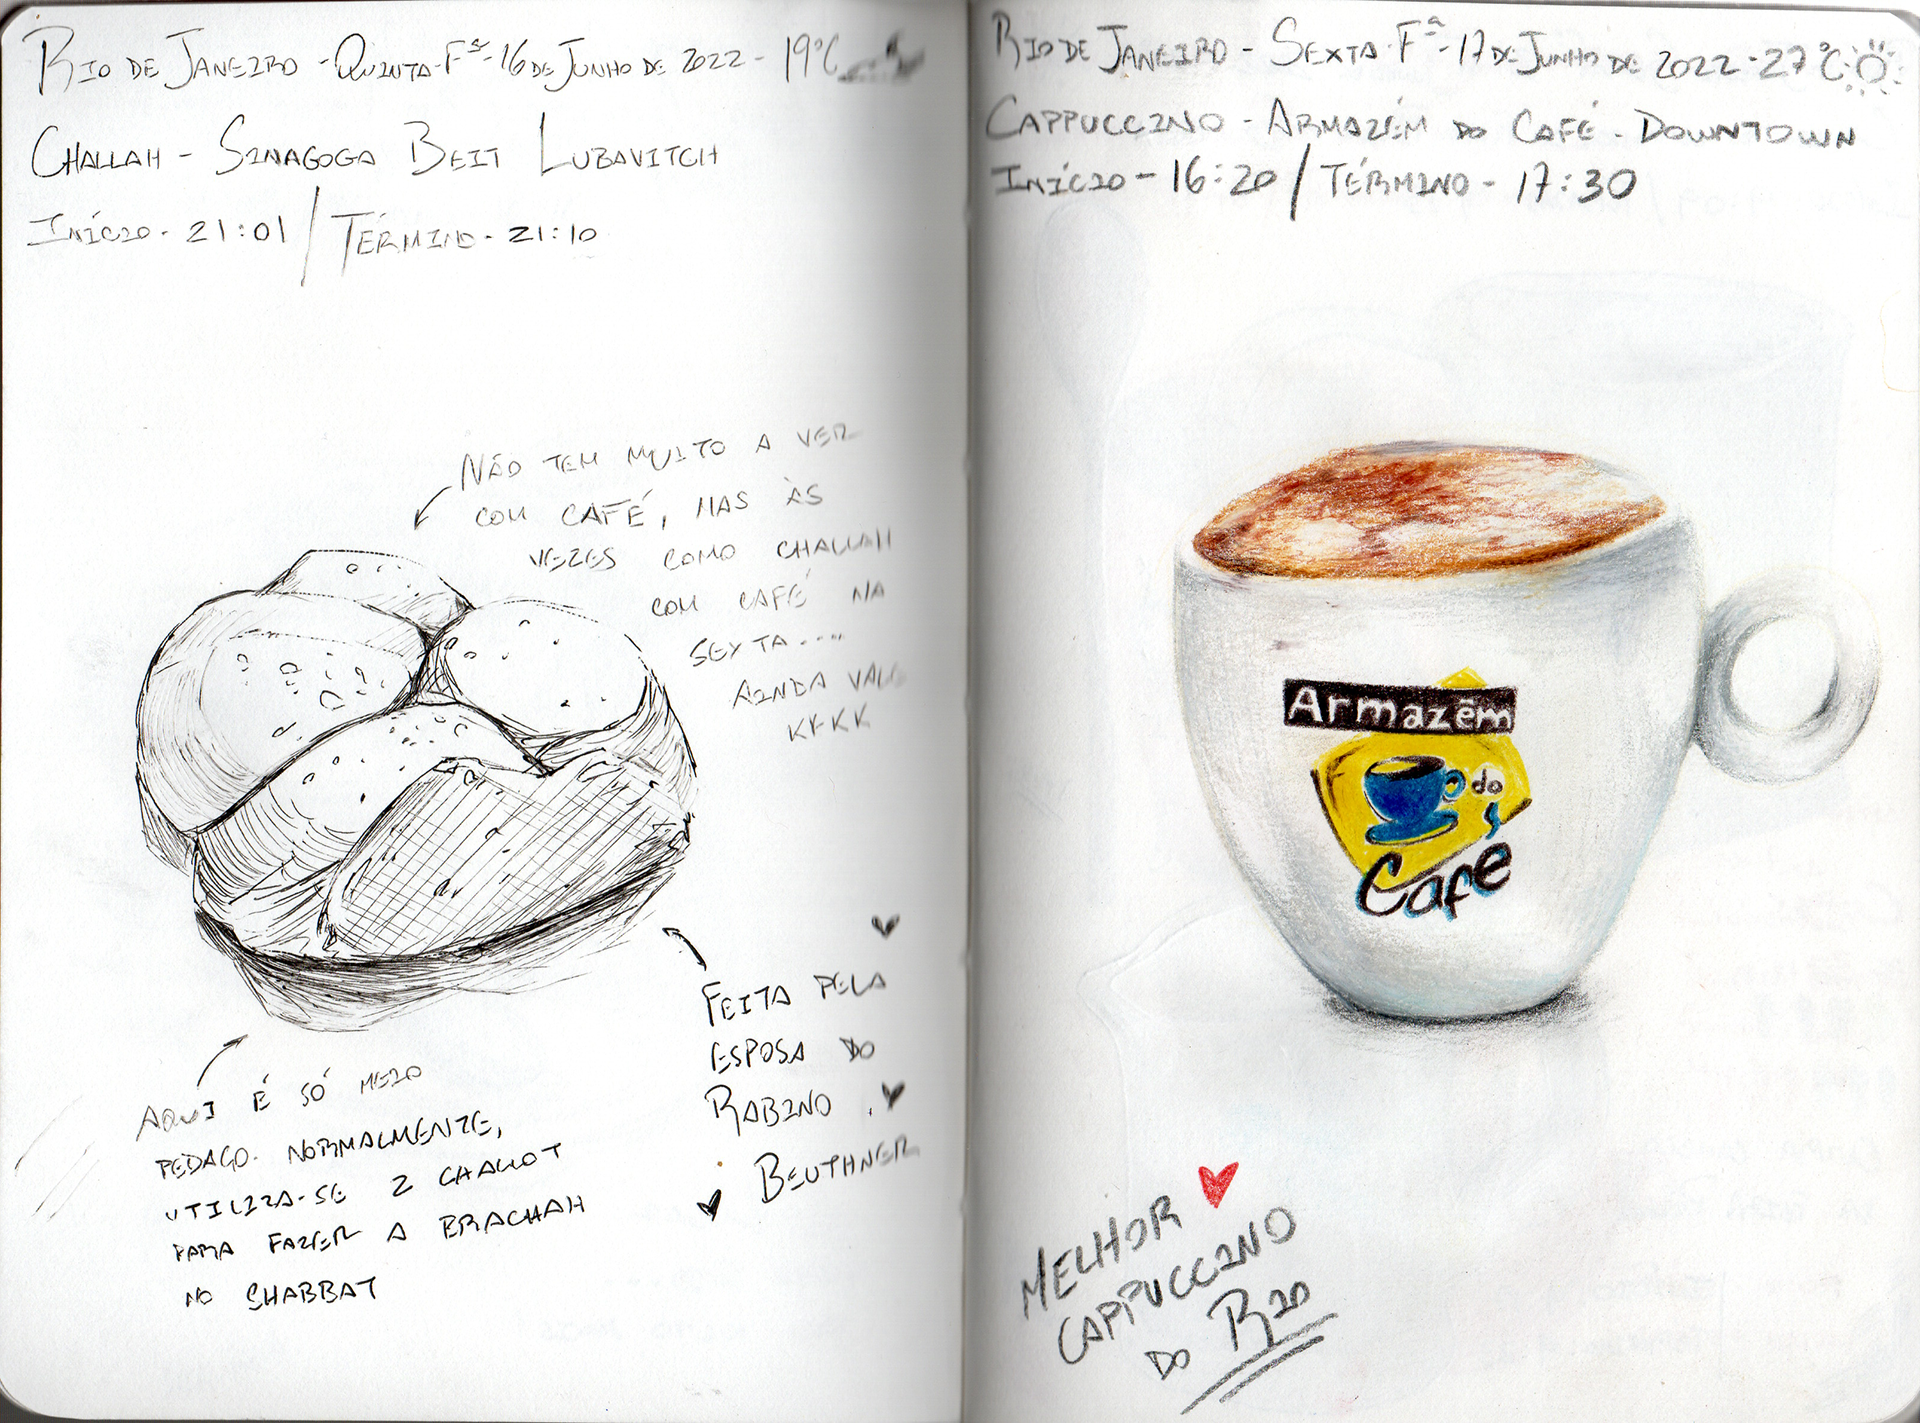 Rio de Janeiro - Quinta-Fª - 16 de Junho de 2022 - 19°C
Challah - Sinagoga Beit Lubavitch
Início - 21:01 / Término - 21:10
Não tem muito a ver
com café, mas às
vezes como challah
com café na
sexta....
Ainda vale
kkkk
Feita pela
esposa do
Rabino.
Beuthner
Aqui é só meio
pedaço. Normalmente,
utiliza-se 2 challot
para fazer a brachah
no Shabbat
Rio de Janeiro - Sexta-Fª - 17 de Junho de 2022 - 27°C
Cappuccino - Armazém do Café - Downtown
Início - 16:20 / Término - 17:30
Armazém
do
Café
Melhor
cappuccino
do Rio